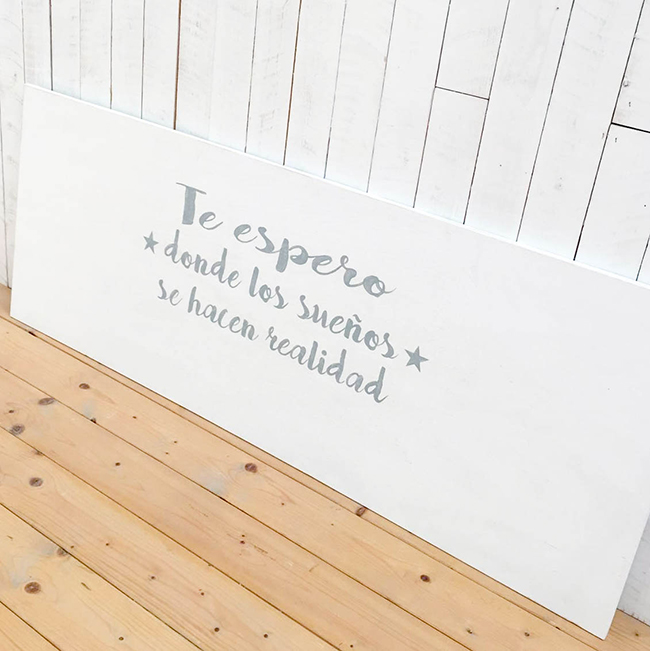 Te espero
donde los sueños
se hacen realidad